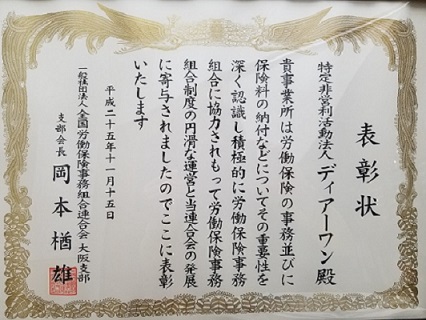 表彰状
特定非営利活動法人 ディアーワン殿
貴事業所は労働保険の事務並びに
保険料の納付などについてその重要性を
深く認識し積極的に労働保険事務
組合に協力されもって労働保険事務
組合制度の円滑な運営と当連合会の発展
に寄与されましたのでここに表彰
いたします
平成二十五年十一月十五日
一般社団法人全国労働保険事務組合連合会 大阪支部
支部会長 岡本楢雄